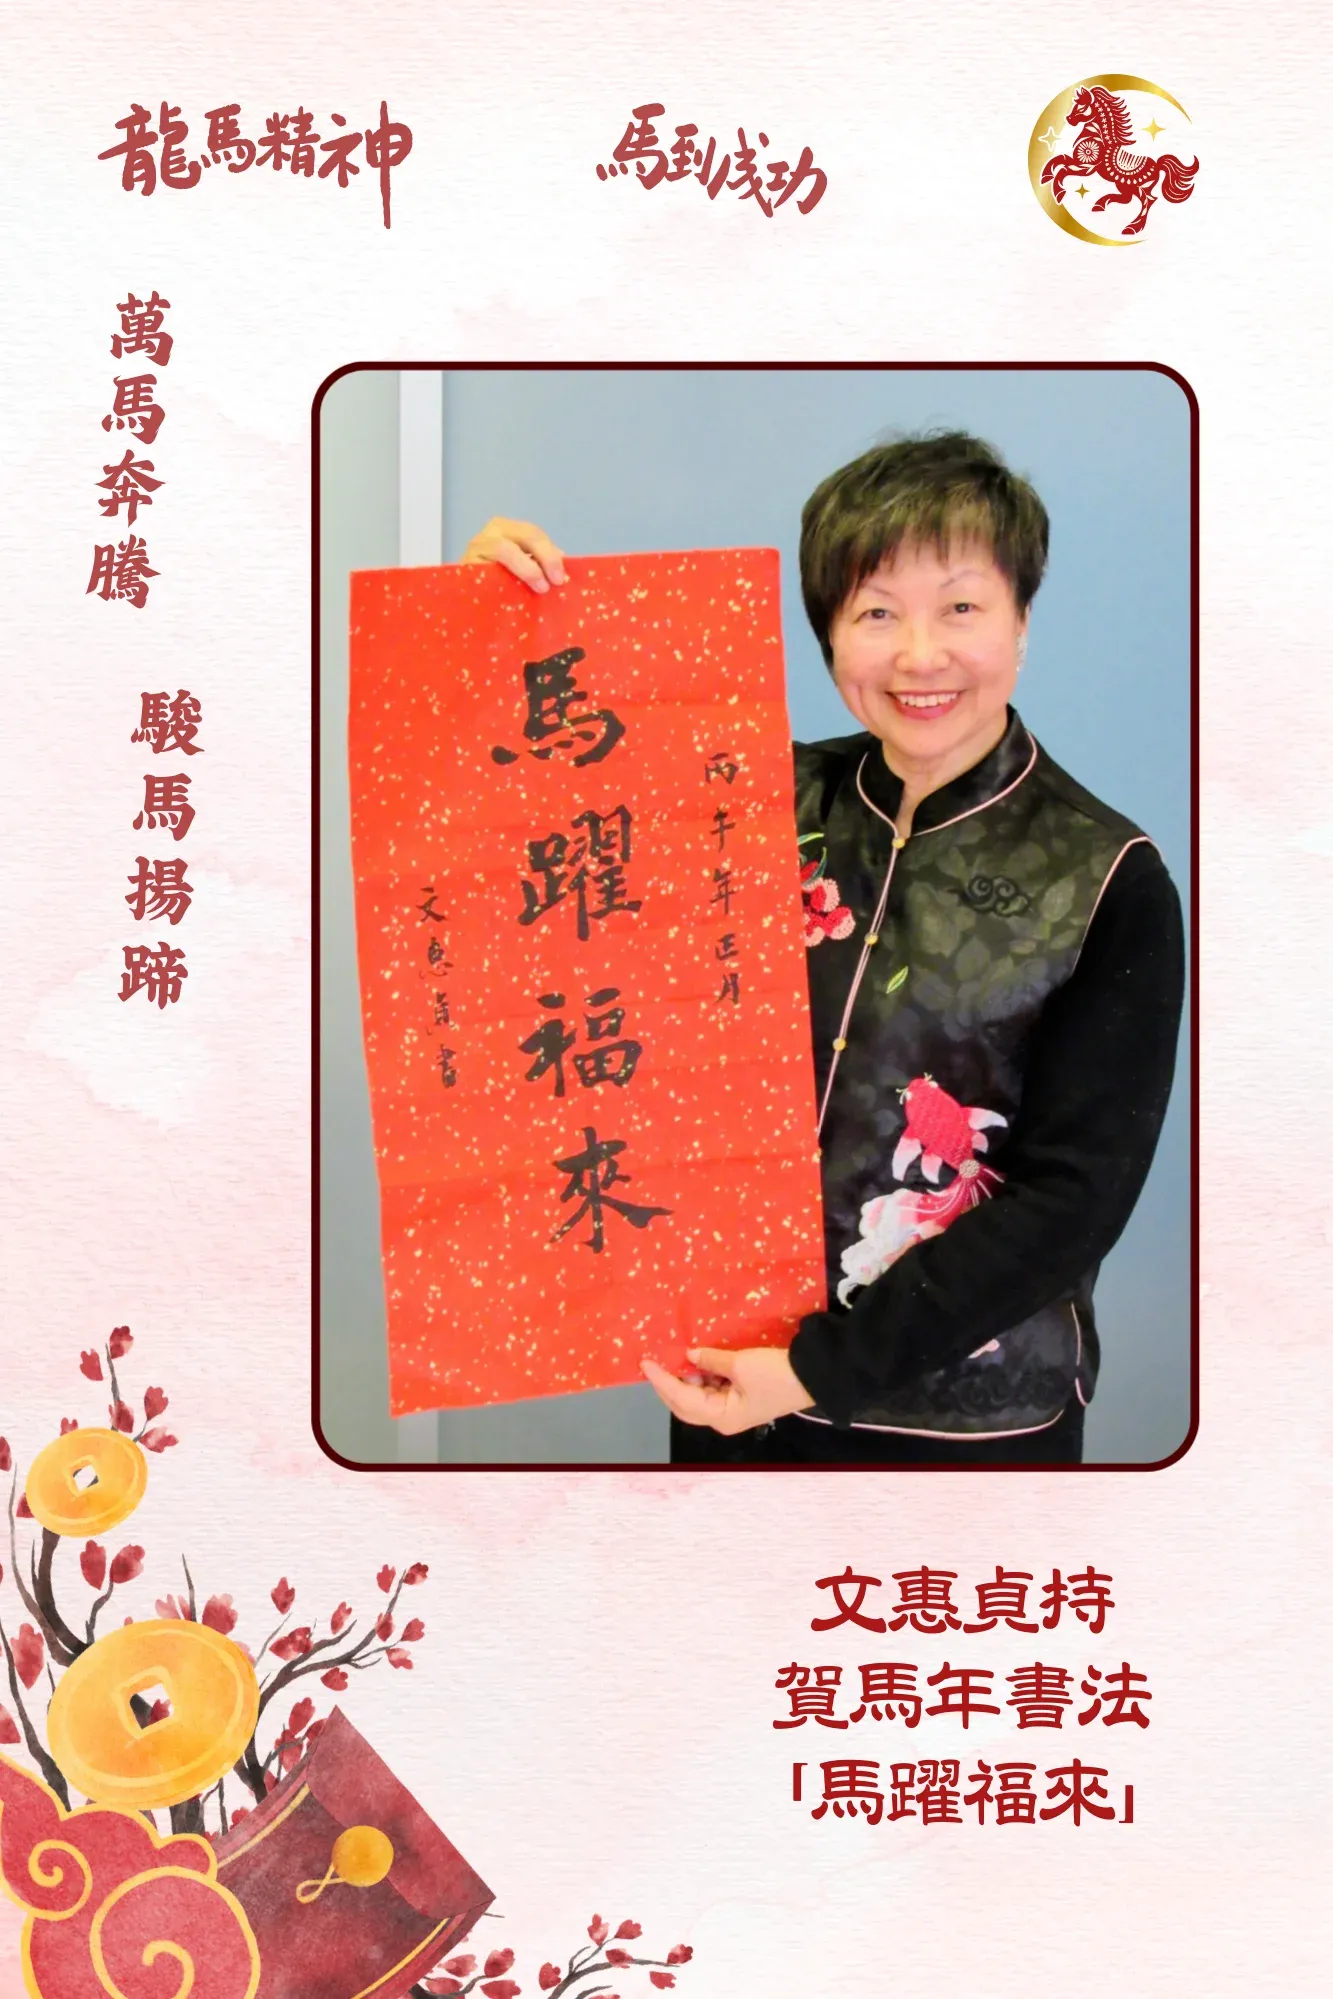 龍馬精神
馬到成功
萬馬奔騰
駿馬揚蹄
丙午年正月
馬躍福來
文惠貞書
文惠貞持
賀馬年書法
「馬躍福來」